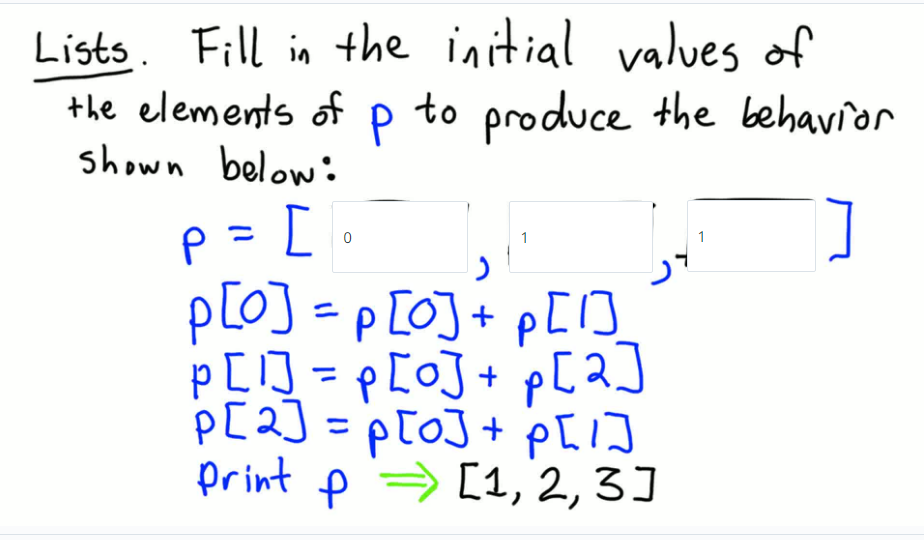 Lists. Fill in the initial values of
the elements of p to produce the behavior
shown below:
p = [ 0 , 1 , 1 ]
p[0] = p[0] + p[1]
p[1] = p[0] + p[2]
p[2] = p[0] + p[1]
print p ⇒ [1, 2, 3]